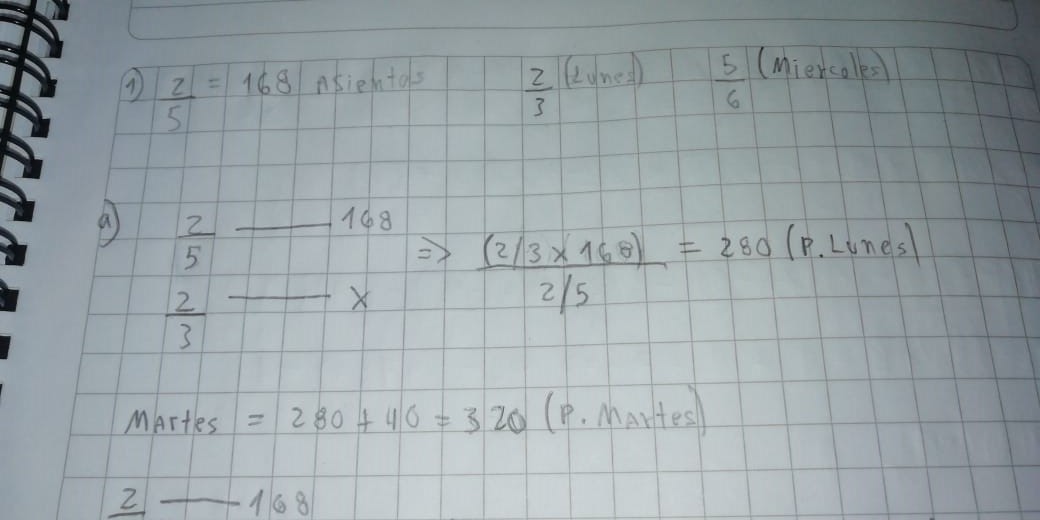 1) 2/5 = 168 Asientos 2/3 (Lunes) 5/6 (Miercoles)
a) 2/5 —— 168
=> (2/3 x 168) / 2/5 = 280 (P. Lunes)
2/3 —— X
Martes = 280 + 40 = 320 (P. Martes)
2 —— 168